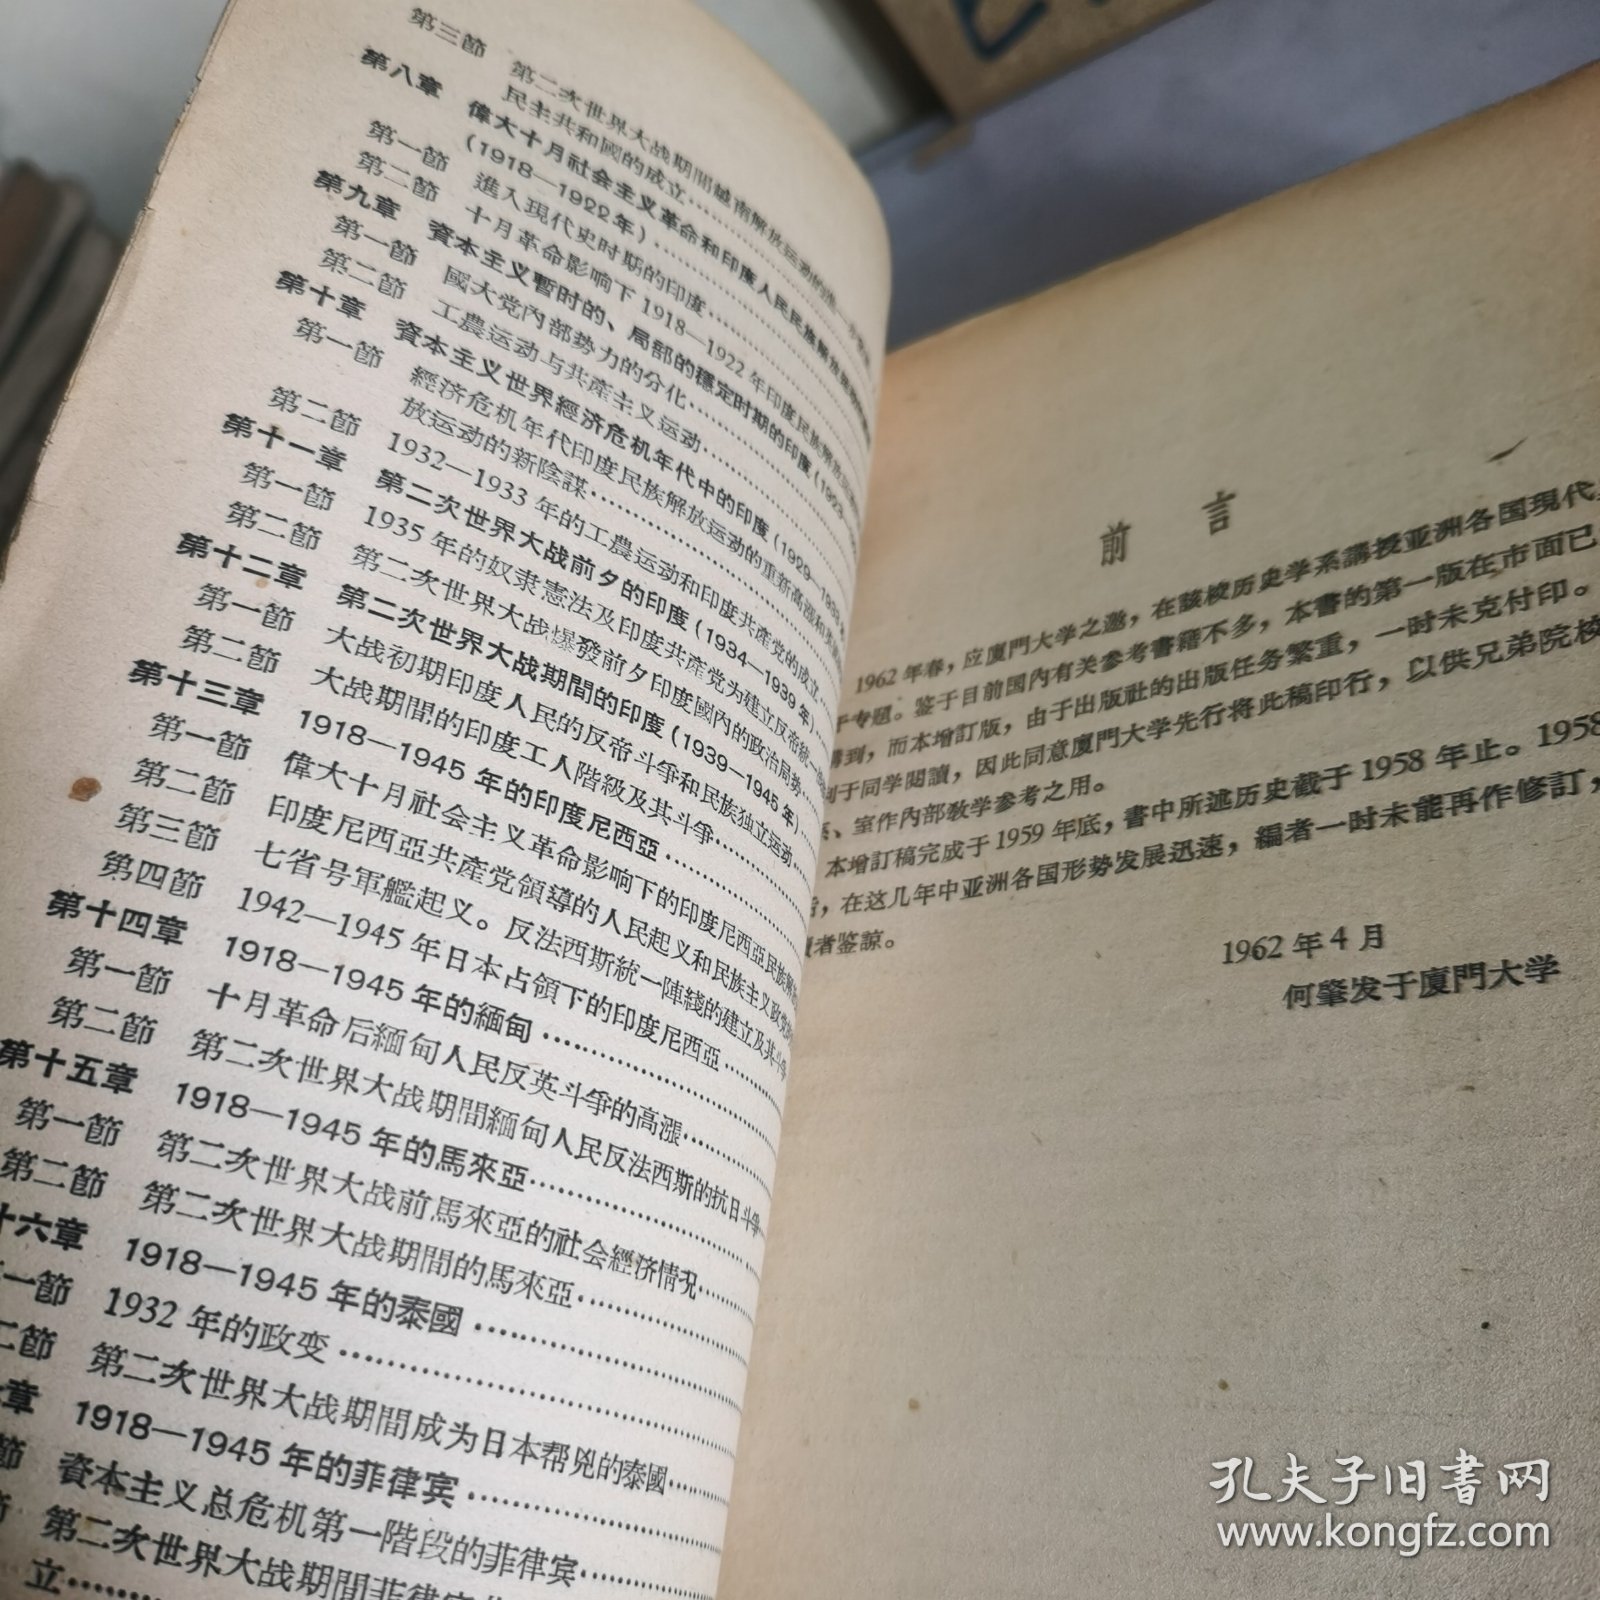 第三節 第二次世界大战期間越南解放运动的進一步
民主共和國的成立
第八章 偉大十月社会主义革命和印度人民民族解放
(1918—1922年)
第一節 進入現代史时期的印度
第二節 十月革命影响下1918—1922年印度民族解放
第九章 資本主义暫时的、局部的穩定时期的印度(1923
第一節 國大党內部势力的分化
第二節 工農运动与共產主义运动
第十章 資本主义世界經济危机年代中的印度(1929—1933
第一節 經济危机年代印度民族解放运动的重新高漲和
放运动的新陰謀
第二節 1932—1933年的工農运动和印度共產党的成立
第十一章 第二次世界大战前夕的印度(1934—1939年)
第一節 1935年的奴隶憲法及印度共產党为建立反帝統一
第二節 第二次世界大战爆發前夕印度國內的政治局势
第十二章 第二次世界大战期間的印度(1939—1945年)
第一節 大战初期印度人民的反帝斗爭和民族独立运动
第二節 大战期間的印度工人階級及其斗爭
第十三章 1918—1945年的印度尼西亞
第一節 偉大十月社会主义革命影响下的印度尼西亞民族解
第二節 印度尼西亞共產党領導的人民起义和民族主义政党
第三節 七省号軍艦起义。反法西斯統一陣綫的建立及其斗爭
第四節 1942—1945年日本占領下的印度尼西亞
第十四章 1918—1945年的緬甸
第一節 十月革命后緬甸人民反英斗爭的高漲
第二節 第二次世界大战期間緬甸人民反法西斯的抗日斗爭
第十五章 1918—1945年的馬來亞
第一節 第二次世界大战前馬來亞的社会經济情况
第二節 第二次世界大战期間的馬來亞
十六章 1918—1945年的泰國
一節 1932年的政变
二節 第二次世界大战期間成为日本帮兇的泰國
章 1918—1945年的菲律宾
節 資本主义总危机第一階段的菲律宾
第二次世界大战期間菲律宾
立
前言
1962年春，应厦門大学之邀，在該校历史学系講授亚洲各国現代
专题。鉴于目前国內有关参考書籍不多，本書的第一版在市面已
購到，而本增訂版，由于出版社的出版任务繁重，一时未克付印。
于同学閱讀，因此同意厦門大学先行将此稿印行，以供兄弟院校
、室作內部教学参考之用。
本增訂稿完成于1959年底，書中所述历史截于1958年止。1958
，在这几年中亚洲各国形势发展迅速，編者一时未能再作修訂，
者鉴諒。
1962年4月
何肇发于厦門大学
孔夫子旧書网
www.kongfz.com